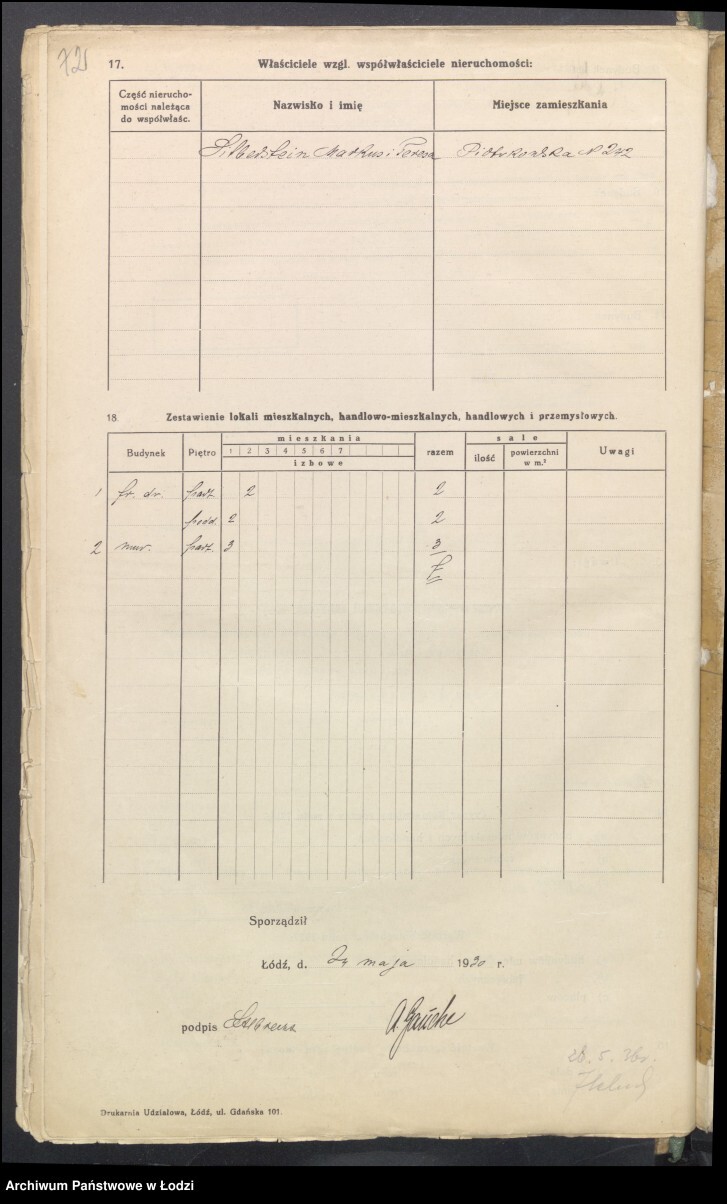 721
17. Właściciele wzgl. współwłaściciele nieruchomości:
Część nierucho-
mości należąca
do współwłaśc.
Nazwisko i imię
Miejsce zamieszkania
Silberstein Markus i Teresa Piotrkowska N 242
18. Zestawienie lokali mieszkalnych, handlowo-mieszkalnych, handlowych i przemysłowych.
Budynek Piętro mieszkania razem sale Uwagi
1 2 3 4 5 6 7
izbowe
ilość powierzchni
w m.²
1 fr. dr. part. 2 2
podd. 2 2
2 mur. part. 3 3
7
Sporządził
Łódź, d. 24 maja 1930 r.
podpis A. Gaucke
Drukarnia Udziałowa, Łódź, ul. Gdańska 101.
Archiwum Państwowe w Łodzi